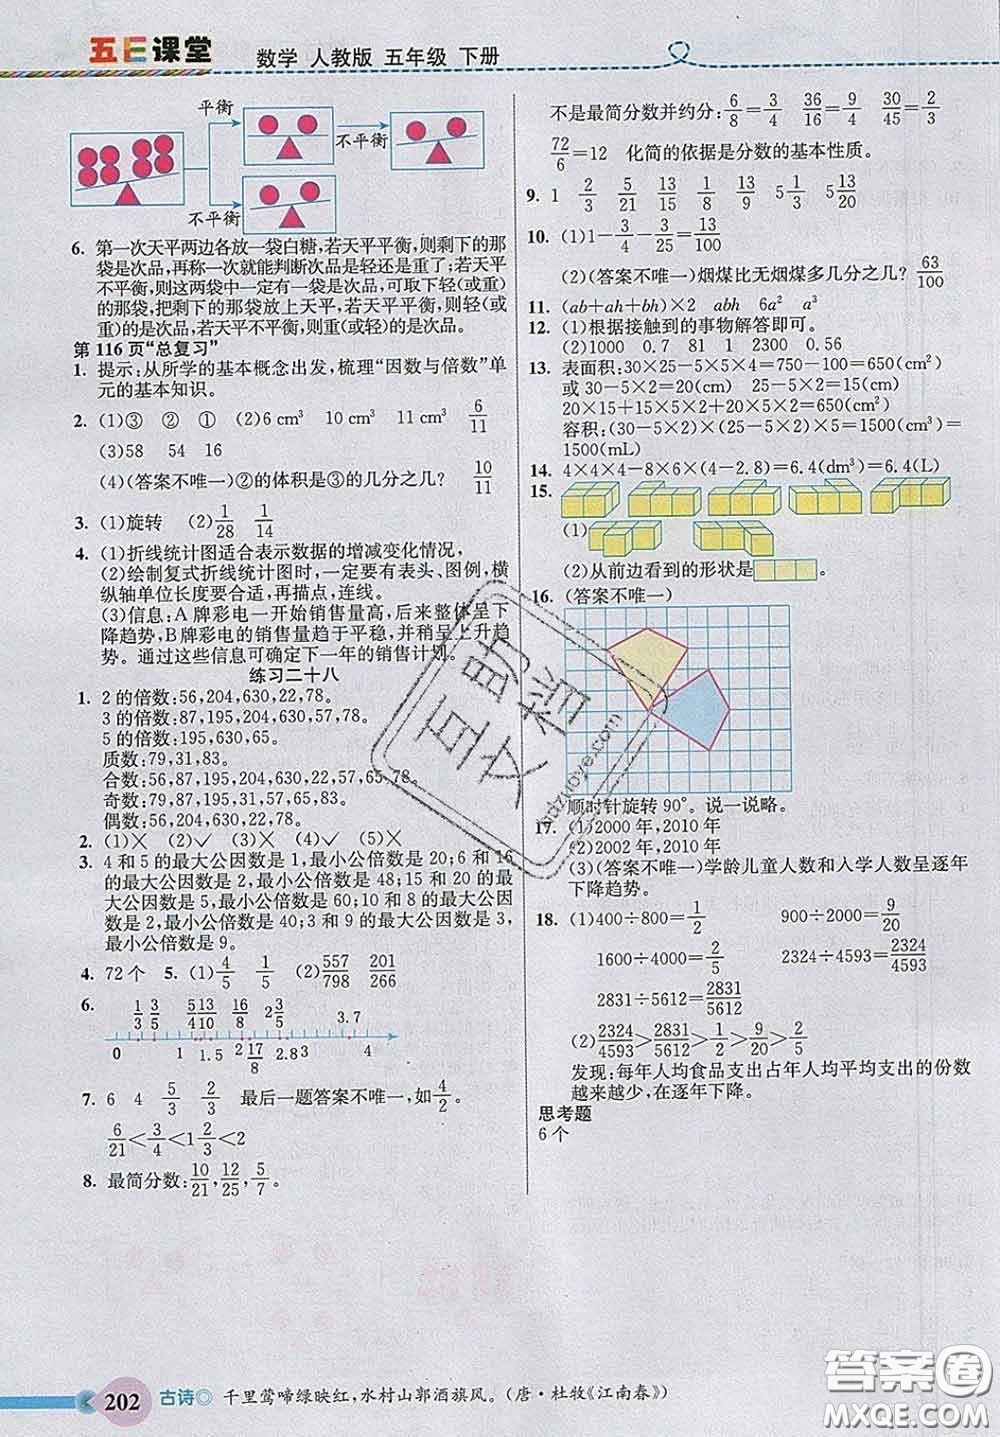 五E课堂
数学 人教版 五年级 下册
平衡
不平衡
不平衡
6. 第一次天平两边各放一袋白糖,若天平平衡,则剩下的那
袋是次品,再称一次就能判断次品是轻还是重了;若天平
不平衡,则这两袋中一定有一袋是次品,可取下轻(或重)
的那袋,把剩下的那袋放上天平,若天平平衡,则轻(或
重)的是次品,若天平不平衡,则重(或轻)的是次品。
第116页“总复习”
1. 提示:从所学的基本概念出发,梳理“因数与倍数”单
元的基本知识。
2. (1)③ ② ① (2)6 cm³ 10 cm³ 11 cm³ 6/11
(3)58 54 16
(4)(答案不唯一)②的体积是③的几分之几? 10/11
3. (1)旋转 (2)1/28 1/14
4. (1)折线统计图适合表示数据的增减变化情况,
(2)绘制复式折线统计图时,一定要有表头、图例,横
纵轴单位长度要合适,再描点,连线。
(3)信息:A牌彩电一开始销售量高,后来整体呈下
降趋势,B牌彩电的销售量趋于平稳,并稍呈上升趋
势。通过这些信息可确定下一年的销售计划。
练习二十八
1. 2的倍数:56,204,630,22,78。
3的倍数:87,195,204,630,57,78。
5的倍数:195,630,65。
质数:79,31,83。
合数:56,87,195,204,630,22,57,65,78。
奇数:79,87,195,31,57,65,83。
偶数:56,204,630,22,78。
2. (1)× (2)✓ (3)× (4)✓ (5)×
3. 4和5的最大公因数是1,最小公倍数是20;6和16
的最大公因数是2,最小公倍数是48;15和20的最大
公因数是5,最小公倍数是60;10和8的最大公因数
是2,最小公倍数是40;3和9的最大公因数是3,
最小公倍数是9。
4. 72个 5. (1)4/5 1/5 (2)557/798 201/266
6. 1/3 3/5 5/4 13/10 16/8 2 3/5 3.7
0 1 1.5 2 17/8 2.8 3 4
7. 6 4 5/3 2/3 最后一题答案不唯一,如4/2。
6/21<3/4<1 2/3<5/2
8. 最简分数:10/21,12/25,5/7。
不是最简分数并约分:6/8=3/4 36/16=9/4 30/45=2/3
72/6=12 化简的依据是分数的基本性质。
9. 1 2/3 5/21 13/15 1/8 9/13 5 1/3 5 13/20
10. (1)1-3/4-3/25=13/100
(2)(答案不唯一)烟煤比无烟煤多几分之几? 63/100
11. (ab+ah+bh)×2 abh 6a² a³
12. (1)根据接触到的事物解答即可。
(2)1000 0.7 81 1 2300 0.56
13. 表面积:30×25-5×5×4=750-100=650(cm²)
或30-5×2=20(cm) 25-5×2=15(cm)
20×15+15×5×2+20×5×2=650(cm²)
容积:(30-5×2)×(25-5×2)×5=1500(cm³)=
1500(mL)
14. 4×4×4-8×6×(4-2.8)=6.4(dm³)=6.4(L)
15.
(1)
(2)从前边看到的形状是 。
16. (答案不唯一)
顺时针旋转90°。说一说略。
17. (1)2000年,2010年
(2)2002年,2010年
(3)(答案不唯一)学龄儿童人数和入学人数呈逐年
下降趋势。
18. (1)400÷800=1/2 900÷2000=9/20
1600÷4000=2/5 2324÷4593=2324/4593
2831÷5612=2831/5612
(2)2324/4593>2831/5612>1/2>9/20>2/5
发现:每年人均食品支出占年人均平均支出的份数
越来越少,在逐年下降。
思考题
6个
202 古诗 千里莺啼绿映红,水村山郭酒旗风。(唐·杜牧《江南春》)
答案圈
MXQE.COM